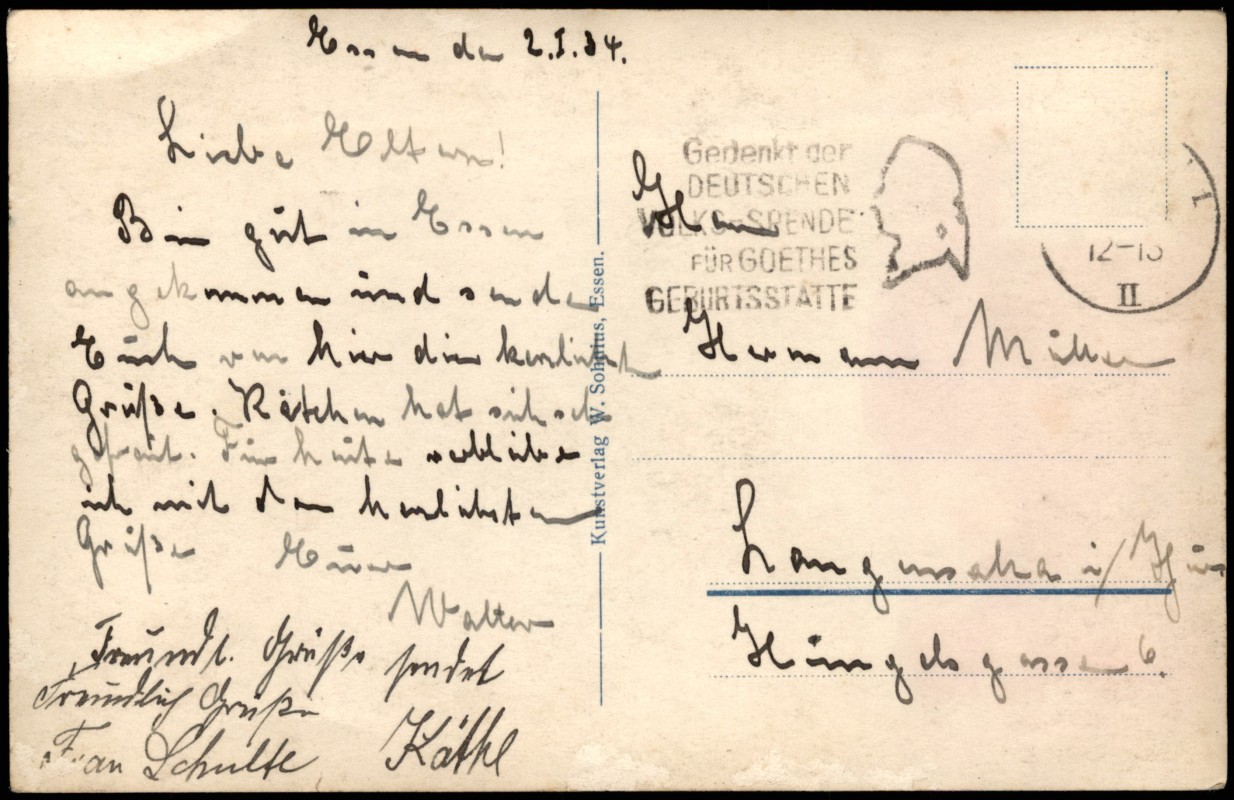 Essen den 2.I.34.
Liebe Eltern!
Bin gut in Essen
angekommen und sende
Euch von hier die herzlichst
Grüße. Kätchen hat sich seh
gefreut. Für heute verbleibe
ich mit den herzlichsten
Grüße Euer
Walter
Freundl. Grüße sendet
Käthe
Freundlich Grüße
Frau Schulte
Kunstverlag W. Sohnius, Essen.
Gedenkt der
DEUTSCHEN
VOLKS-SPENDE
FÜR GOETHES
GEBURTSSTÄTTE
12-13
II
Herrn
Hermann Müller
Langensalza i/Thür
Hüngelsgasse 6.